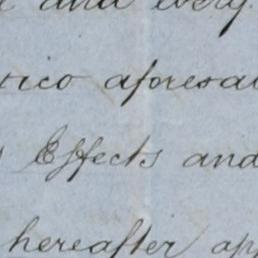 and every
tico aforesai
Effects and
hereafter app